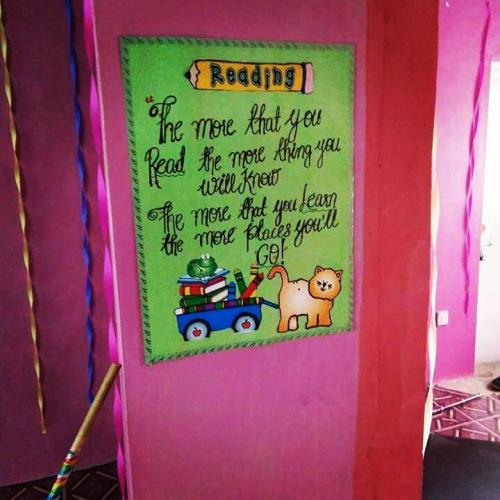 Reading
"The more that you
Read the more thing you
will Know
The more that you Learn
the more places you'll
GO!